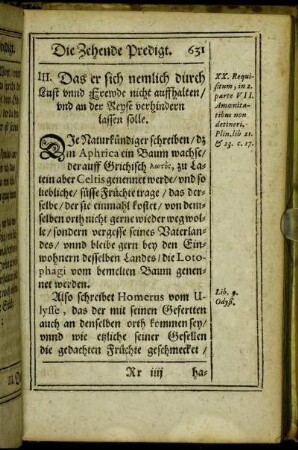 Die Zehende Predigt. 631
III. Das er sich nemlich durch
Lust vnnd Frewde nicht auffhalten /
vnd an der Reyse verhindern
lassen solle.
DJe Naturkündiger schreiben / dz
in Aphrica ein Baum wachse /
der auff Grichisch λωτὸς, zu La-
tein aber Celtis genennet werde / vnd so
liebliche / süsse Früchte trage / das der-
selbe / der sie einmahl kostet / von dem-
selben orth nicht gerne wieder weg wol-
le / sondern vergesse seines Vaterlan-
des / vnnd bleibe gern bey den Ein-
wohnern desselben Landes / die Loto-
phagi vom bemelten Baum genen-
net werden.
Also schreibet Homerus vom U-
lysse, das der mit seinen Geferтten
auch an denselben orth kommen sey /
vnnd wie etzliche seiner Gesellen
die gedachten Früchte geschmecket /
Rr iiij ha-
XX. Requi-
situm, in 2.
parte VII.
Amœnita-
tibus non
detineri.
Plin. lib 21.
& 23. c. 17.
Lib. 9.
Odyß.